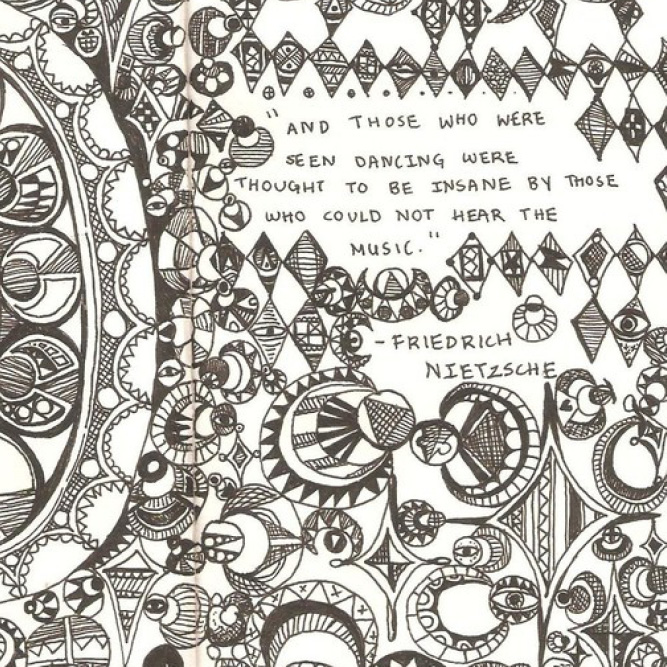 "AND THOSE WHO WERE
SEEN DANCING WERE
THOUGHT TO BE INSANE BY THOSE
WHO COULD NOT HEAR THE
MUSIC."
-FRIEDRICH
NIETZSCHE